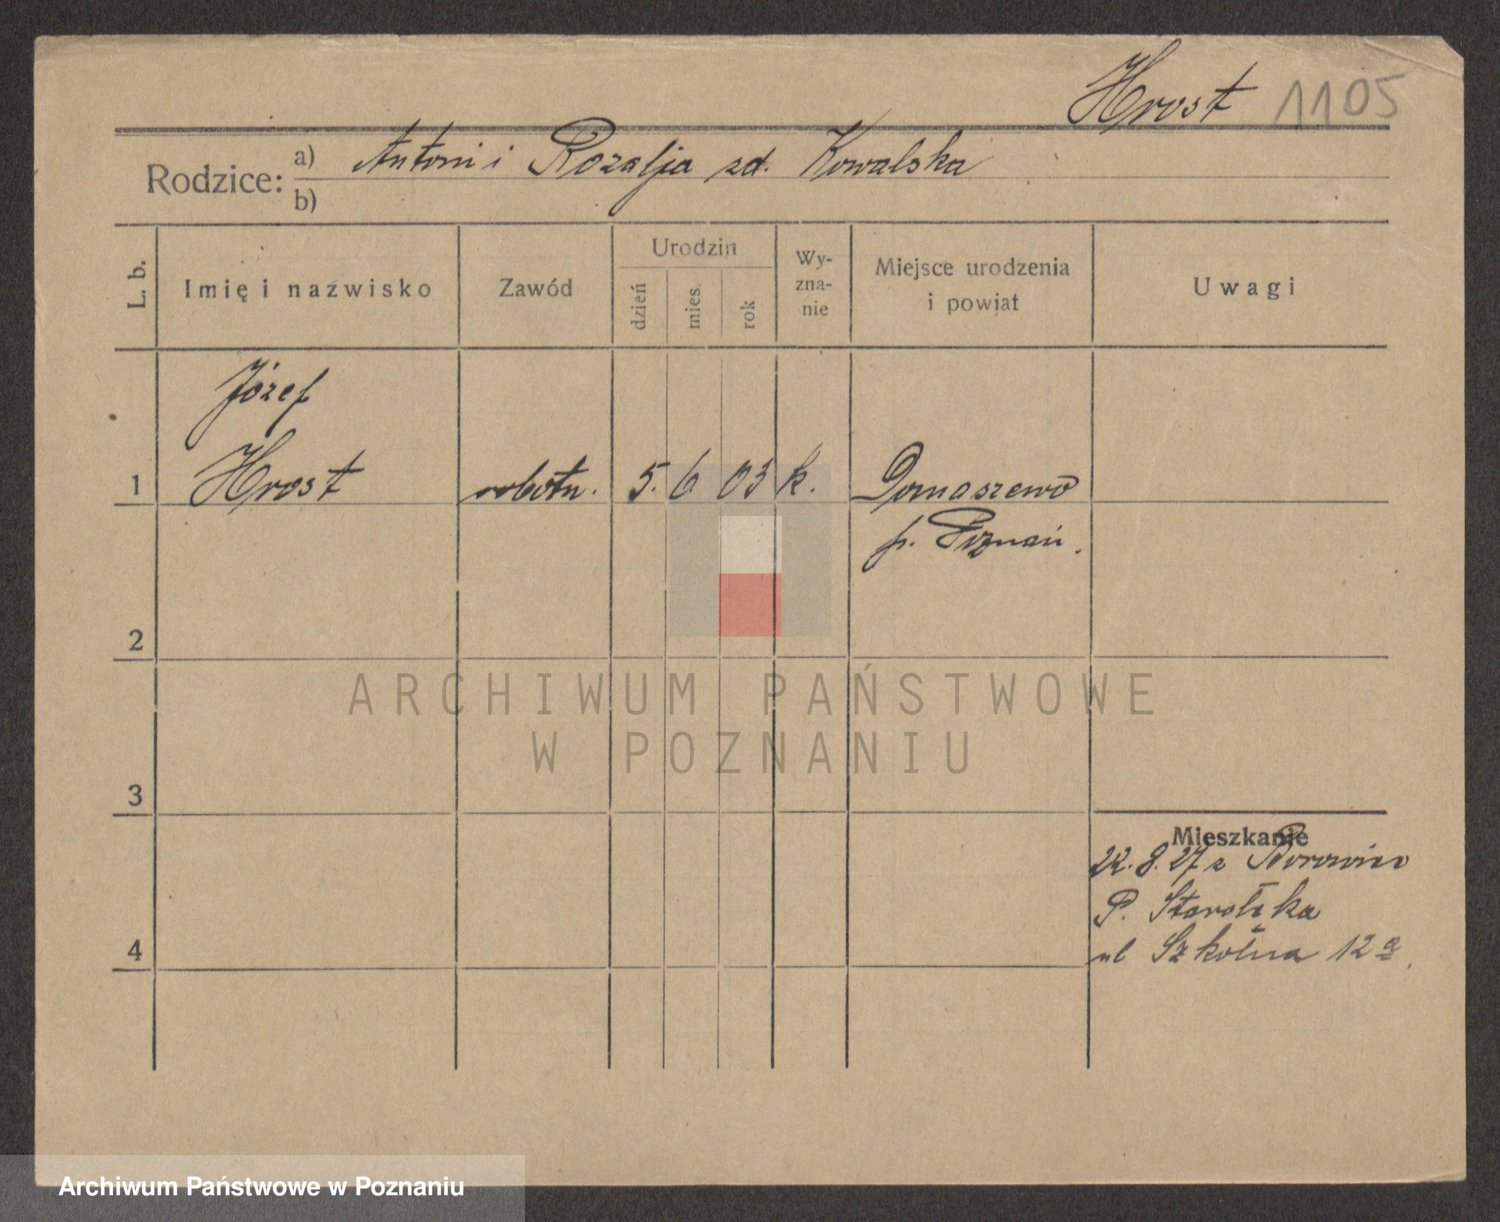 Hrost 1105
Rodzice: a) Antoni i Rozalja zd. Kowalska
b)
L. b.
Imię i nazwisko
Zawód
Urodzin
dzień
mies.
rok
Wy-
zna-
nie
Miejsce urodzenia
i powiat
Uwagi
Józef
1 Hrost robotn. 5. 6 03 k. Domaszewo
p. Poznań.
2
ARCHIWUM PAŃSTWOWE
W POZNANIU
3
Mieszkanie
22. 8. 27 z Borowiec
P. Starołęka
4
ul Szkolna 12 a
Archiwum Państwowe w Poznaniu